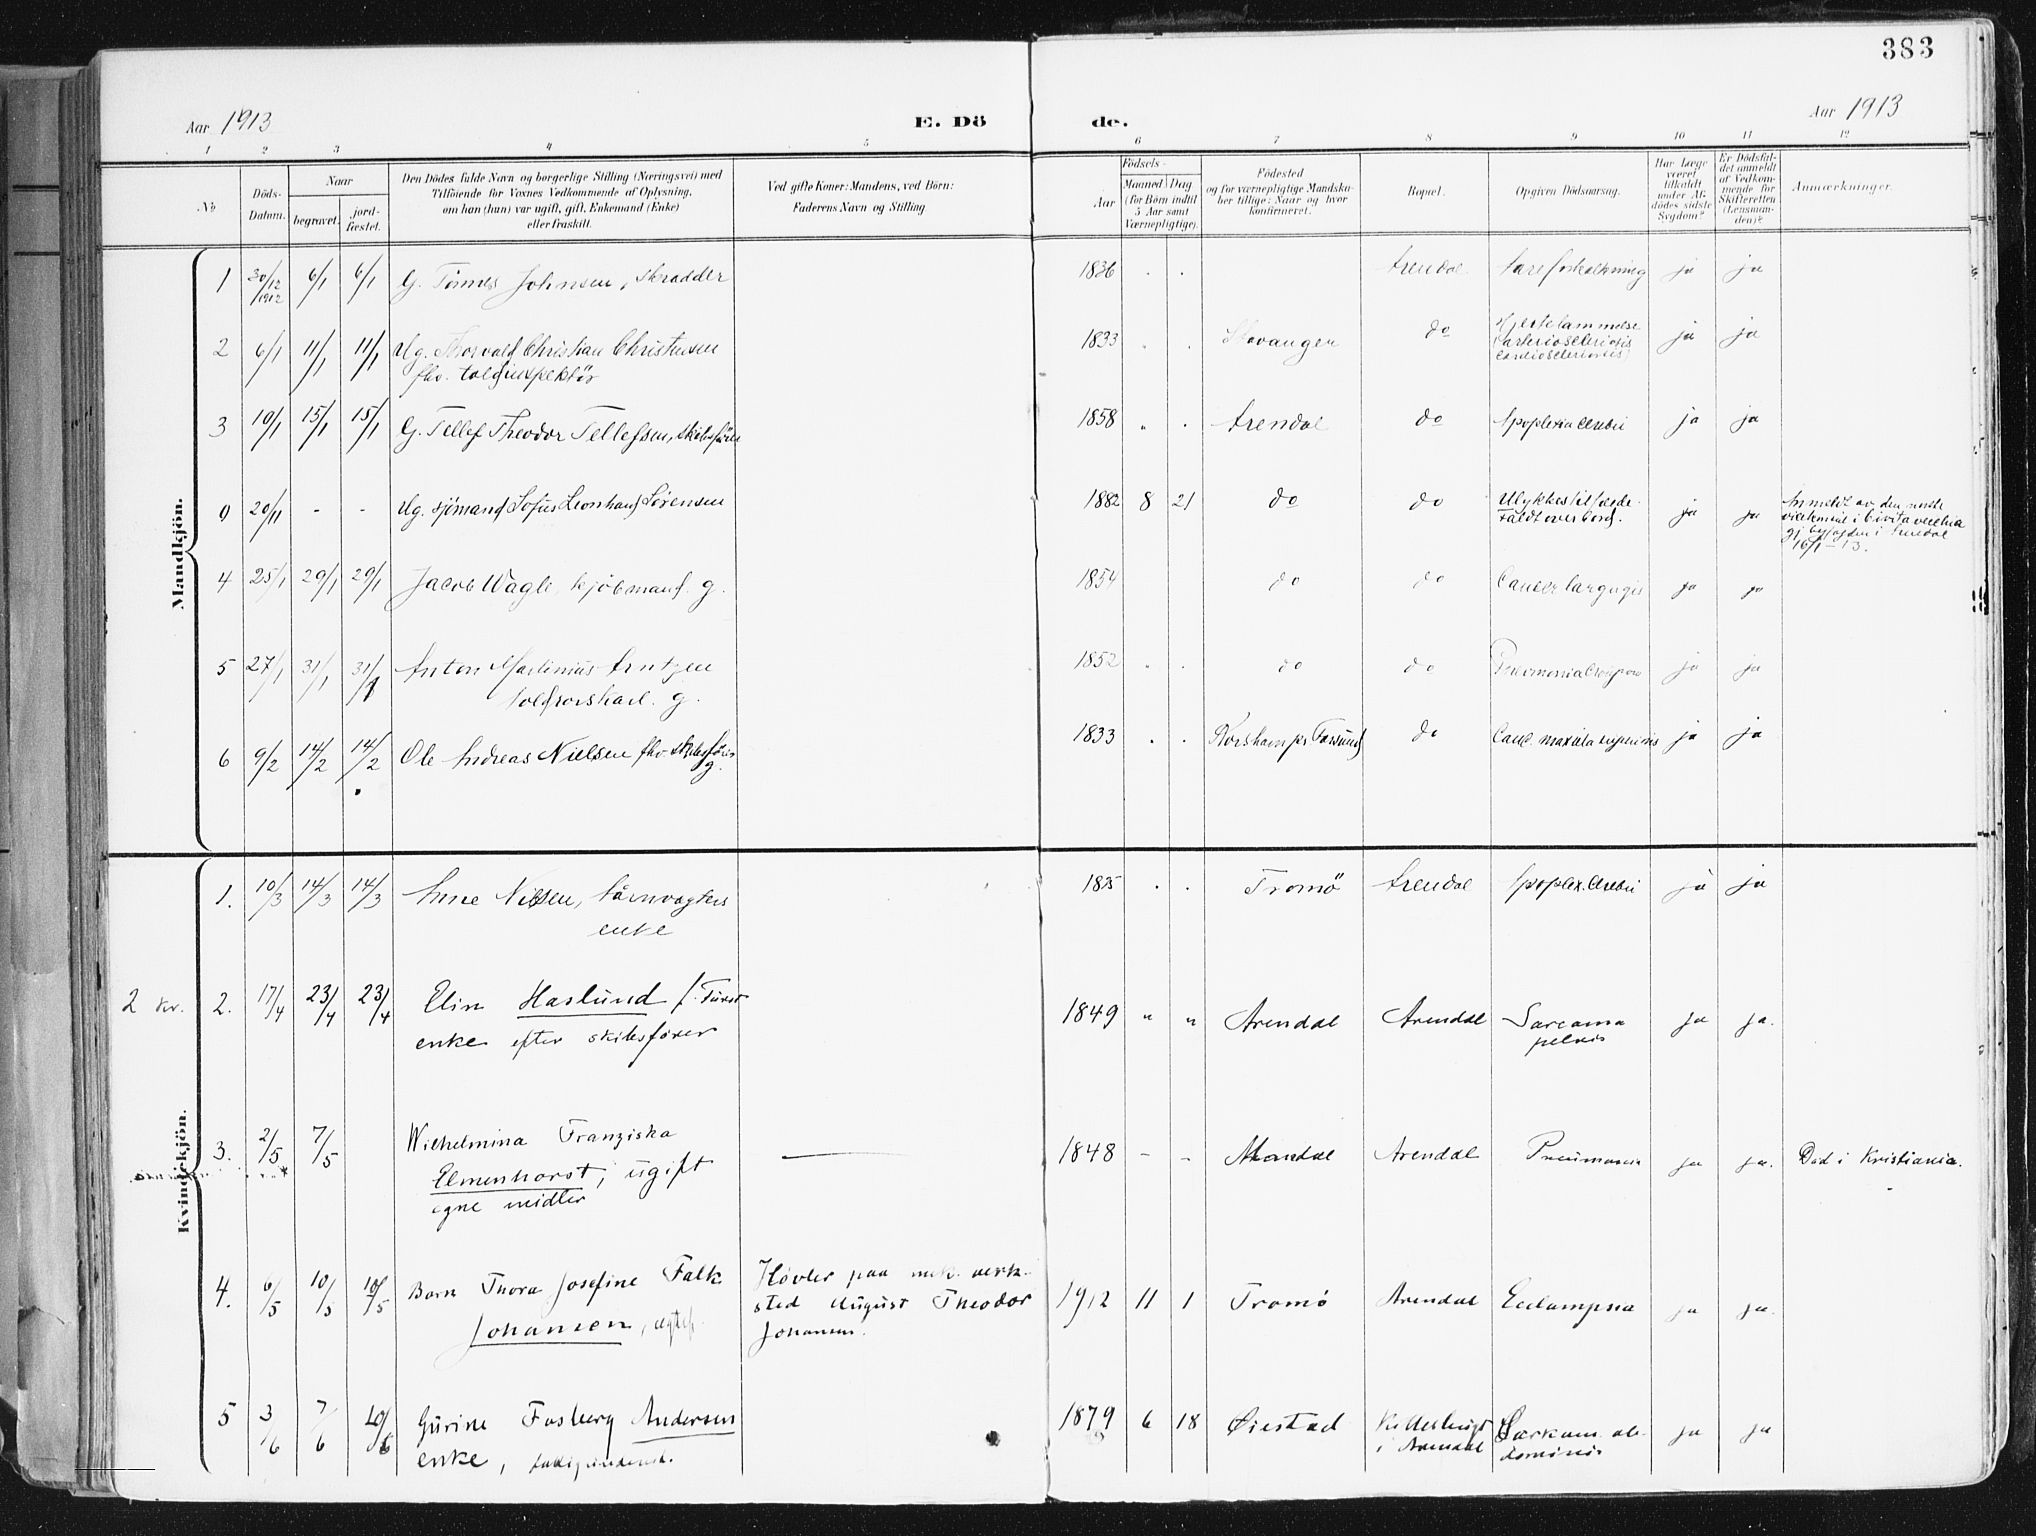 383
Aar 1913
E. Dö
de.
Aar 1913
1 2 3 4 5 6 7 8 9 10 11 12
No
Döds-Datum.
Naar
begravet.
jord-fæstet.
Den Dödes fulde Navn og borgerlige Stilling (Næringsvei) med
Tilföiende for Voxnes Vedkommende af Oplysning,
om han (hun) var ugift, gift, Enkemand (Enke)
eller fraskilt.
Ved gifte Koner: Mandens, ved Börn:
Faderens Navn og Stilling
Födsels-
Aar
Maaned Dag
(for Börn indtil
5 Aar samt
Værnepligtige).
Födested
og for værnepligtige Mandska-
ber tillige: Naar og hvor
konfirmeret.
Bopæl.
Opgiven Dödsaarsag.
Har Læge
været
tilkaldt
under Af-
dödes sidste
Sygdom?
Er Dödsfal-
det anmeldt
af Vedkom-
mende for
Skifteretten
(Lensman-
den)?
Anmærkninger.
Mandkjön.
1 30/12 1912 6/1 6/1 G. Tönnes Johnsen, Skrædder 1836 Arendal ja ja
2 6/1 11/1 11/1 Ug. Thorvald Christian Christensen 1833 Stavanger do Hjertelammelse ja ja
fhv. toldinspektör
3 10/1 15/1 15/1 G. Tellef Theodor Tellefsen, skibsförer 1858 Arendal do Apoplexia cerebri ja ja
9 20/11 - - Ug. sjömand Sofus Leonhard Sørensen 1882 8 21 do do Ulykkestilfælde. ja ja
Faldt overbord.
16/1-13.
4 25/1 29/1 29/1 Jacob Wagle, kjöbmand. g. 1854 do do Cancer laryngis ja ja
5 27/1 31/1 31/1 Anton Martinius Arntzen 1852 do do ja ja
g.
6 9/2 14/2 14/2 Ole Andreas Nielsen fhv. skibsförer 1833 Korshamn pr Farsund do Canc. maxilla superioris ja ja
g.
Kvindekjön.
1. 10/3 14/3 14/3 Anne Nielsen, tårnvagters Tromö Arendal Apoplex. cerebri ja ja
enke
2 kr. 2. 17/4 23/4 23/4 Elin Haslund f. Fürst 1849 " " Arendal Arendal Sarcoma ja ja.
enke efter skibsfører pelvis
3. 2/5 7/5 Wilhelmina Franziska 1848 - - Arendal Pneumonia ja ja. Død i Kristiania.
Elmenhorst, ugift
egne midler
4. 6/5 10/5 10/5 Barn Thora Josefine Falk Høvler paa mek. verk- 1912 11 1 Tromö Arendal Eclampsia ja ja.
Johansen, sted August Theodor
Johansen.
5 3/6 7/6 10/6 Gurine Fosberg Andersen 1879 6 18 Øiestad Kittelsbugt Sarkom. ab- ja ja
enke, i Arendal dominis